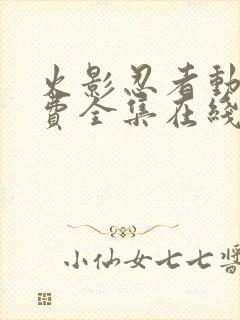 火影忍者動
費全集在綫
小仙女七七醬